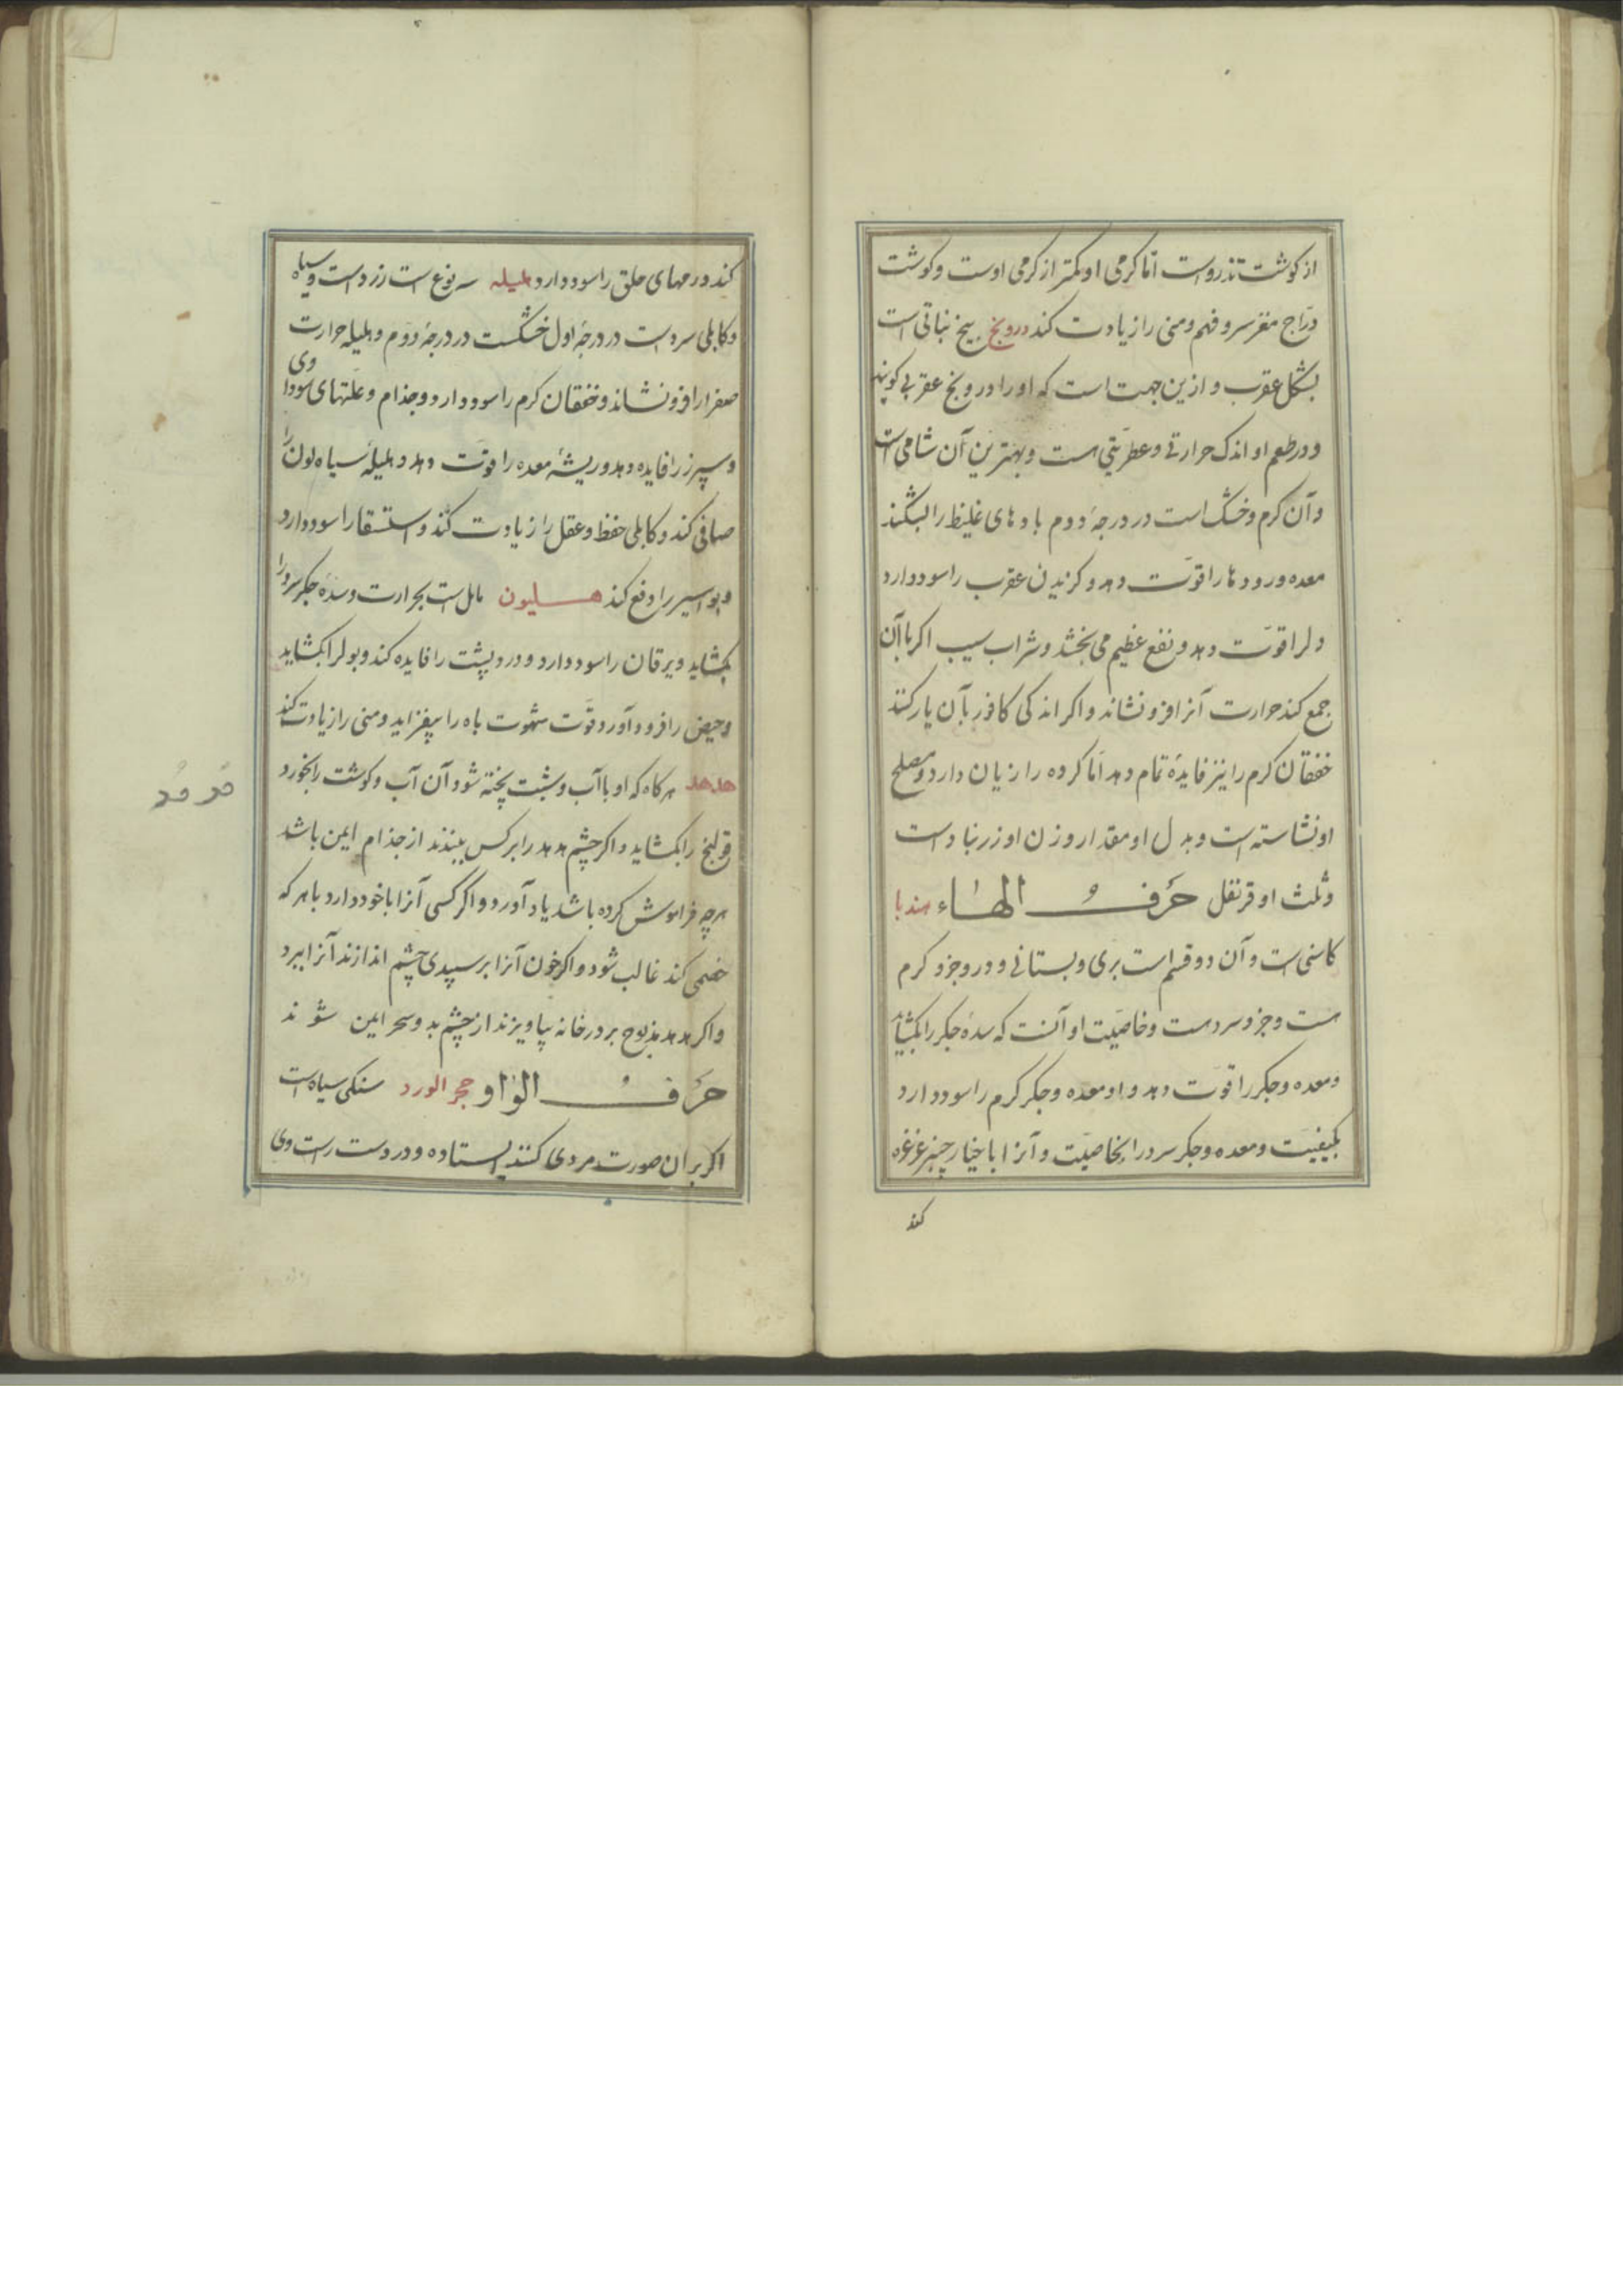 از کوشت تذروست اما کرمی او کمتر از کرمی اوست و کوشت
درّاج مغز سر و فهم و منی را زیادت کند درونج بیخ نباتی است
بشکل عقرب و ازین جهت است که او را درونج عقربی کویند
و در طعم او اندک حرارتی و عطریّتی هست و بهترین آن شامی است
و آن کرم و خشک است در درجهٔ دوم بادهای غلیظ را بشکند
معده و رودها را قوّت دهد و کزیدن عقرب را سود دارد
دلرا قوّت دهد و نفع عظیم می بخشد و شراب سیب اکر با آن
جمع کند حرارت آنرا فرونشاند و اکر اندکی کافور با آن یار کنند
خفقان کرم را نیز فایدهٔ تمام دهد امّا کرده را زیان دارد و مصلح
او نشاسته است و بدل او مقدار وزن او زرنبادست
و ثلث او قرنفل حَرفُ الهاء هندبا
کاسنی است و آن دو قسم است بری و بستانی و درو جزو کرم
هست و جزو سردست و خاصیّت او آنست که سدهٔ جکر را بکشاید
و معده و جکر را قوّت دهد و او معده و جکر کرم را سود دارد
بکیفیّت و معده و جکر سرد را بخاصیّت و آنرا با خیار چنبر غرغره
کند
کند ورمهای حلق را سود دارد هلیله سه نوع است زردست و سیاه
و کابلی سردست در درجهٔ اول خشکست در درجهٔ دوم و هلیله حرارت
صفرا را فرونشاند و خفقان کرم را سود دارد و جذام و علّتهای سوداوی
و سپرز را فایده دهد و ریشهٔ معده را قوّت دهد و هلیلهٔ سیاه لون را
صافی کند و کابلی حفظ و عقل را زیادت کند و استسقا را سود دارد
و بواسیر را دفع کند هلیون مایل است بحرارت و سدهٔ جکر سرد را
بکشاید و یرقان را سود دارد و درد پشت را فایده کند و بولرا بکشاید
و حیض را فرود آورد و قوّت شهوت باه را بیفزاید و منی را زیادت کند
هدهد هرکاه که او با آب و شبت پخته شود آن آب و کوشت را بخورد
قولنج را بکشاید و اکر چشم هدهد را بر کس ببندند از جذام ایمن باشد
هرچه فراموش کرده باشد یاد آورد و اکر کسی آنرا با خود دارد با هر که
خصمی کند غالب شود و اکر خون آنرا بر سپیدی چشم اندازند آنرا ببرد
و اکر هدهد مذبوح بر در خانه بیاویزند از چشم بد و سحر ایمن شوند
حَرفُ الواو حجر الورد سنکی سیاه است
اکر بران صورت مردی کنند ایستاده و در دست راست وی
هُدهُد